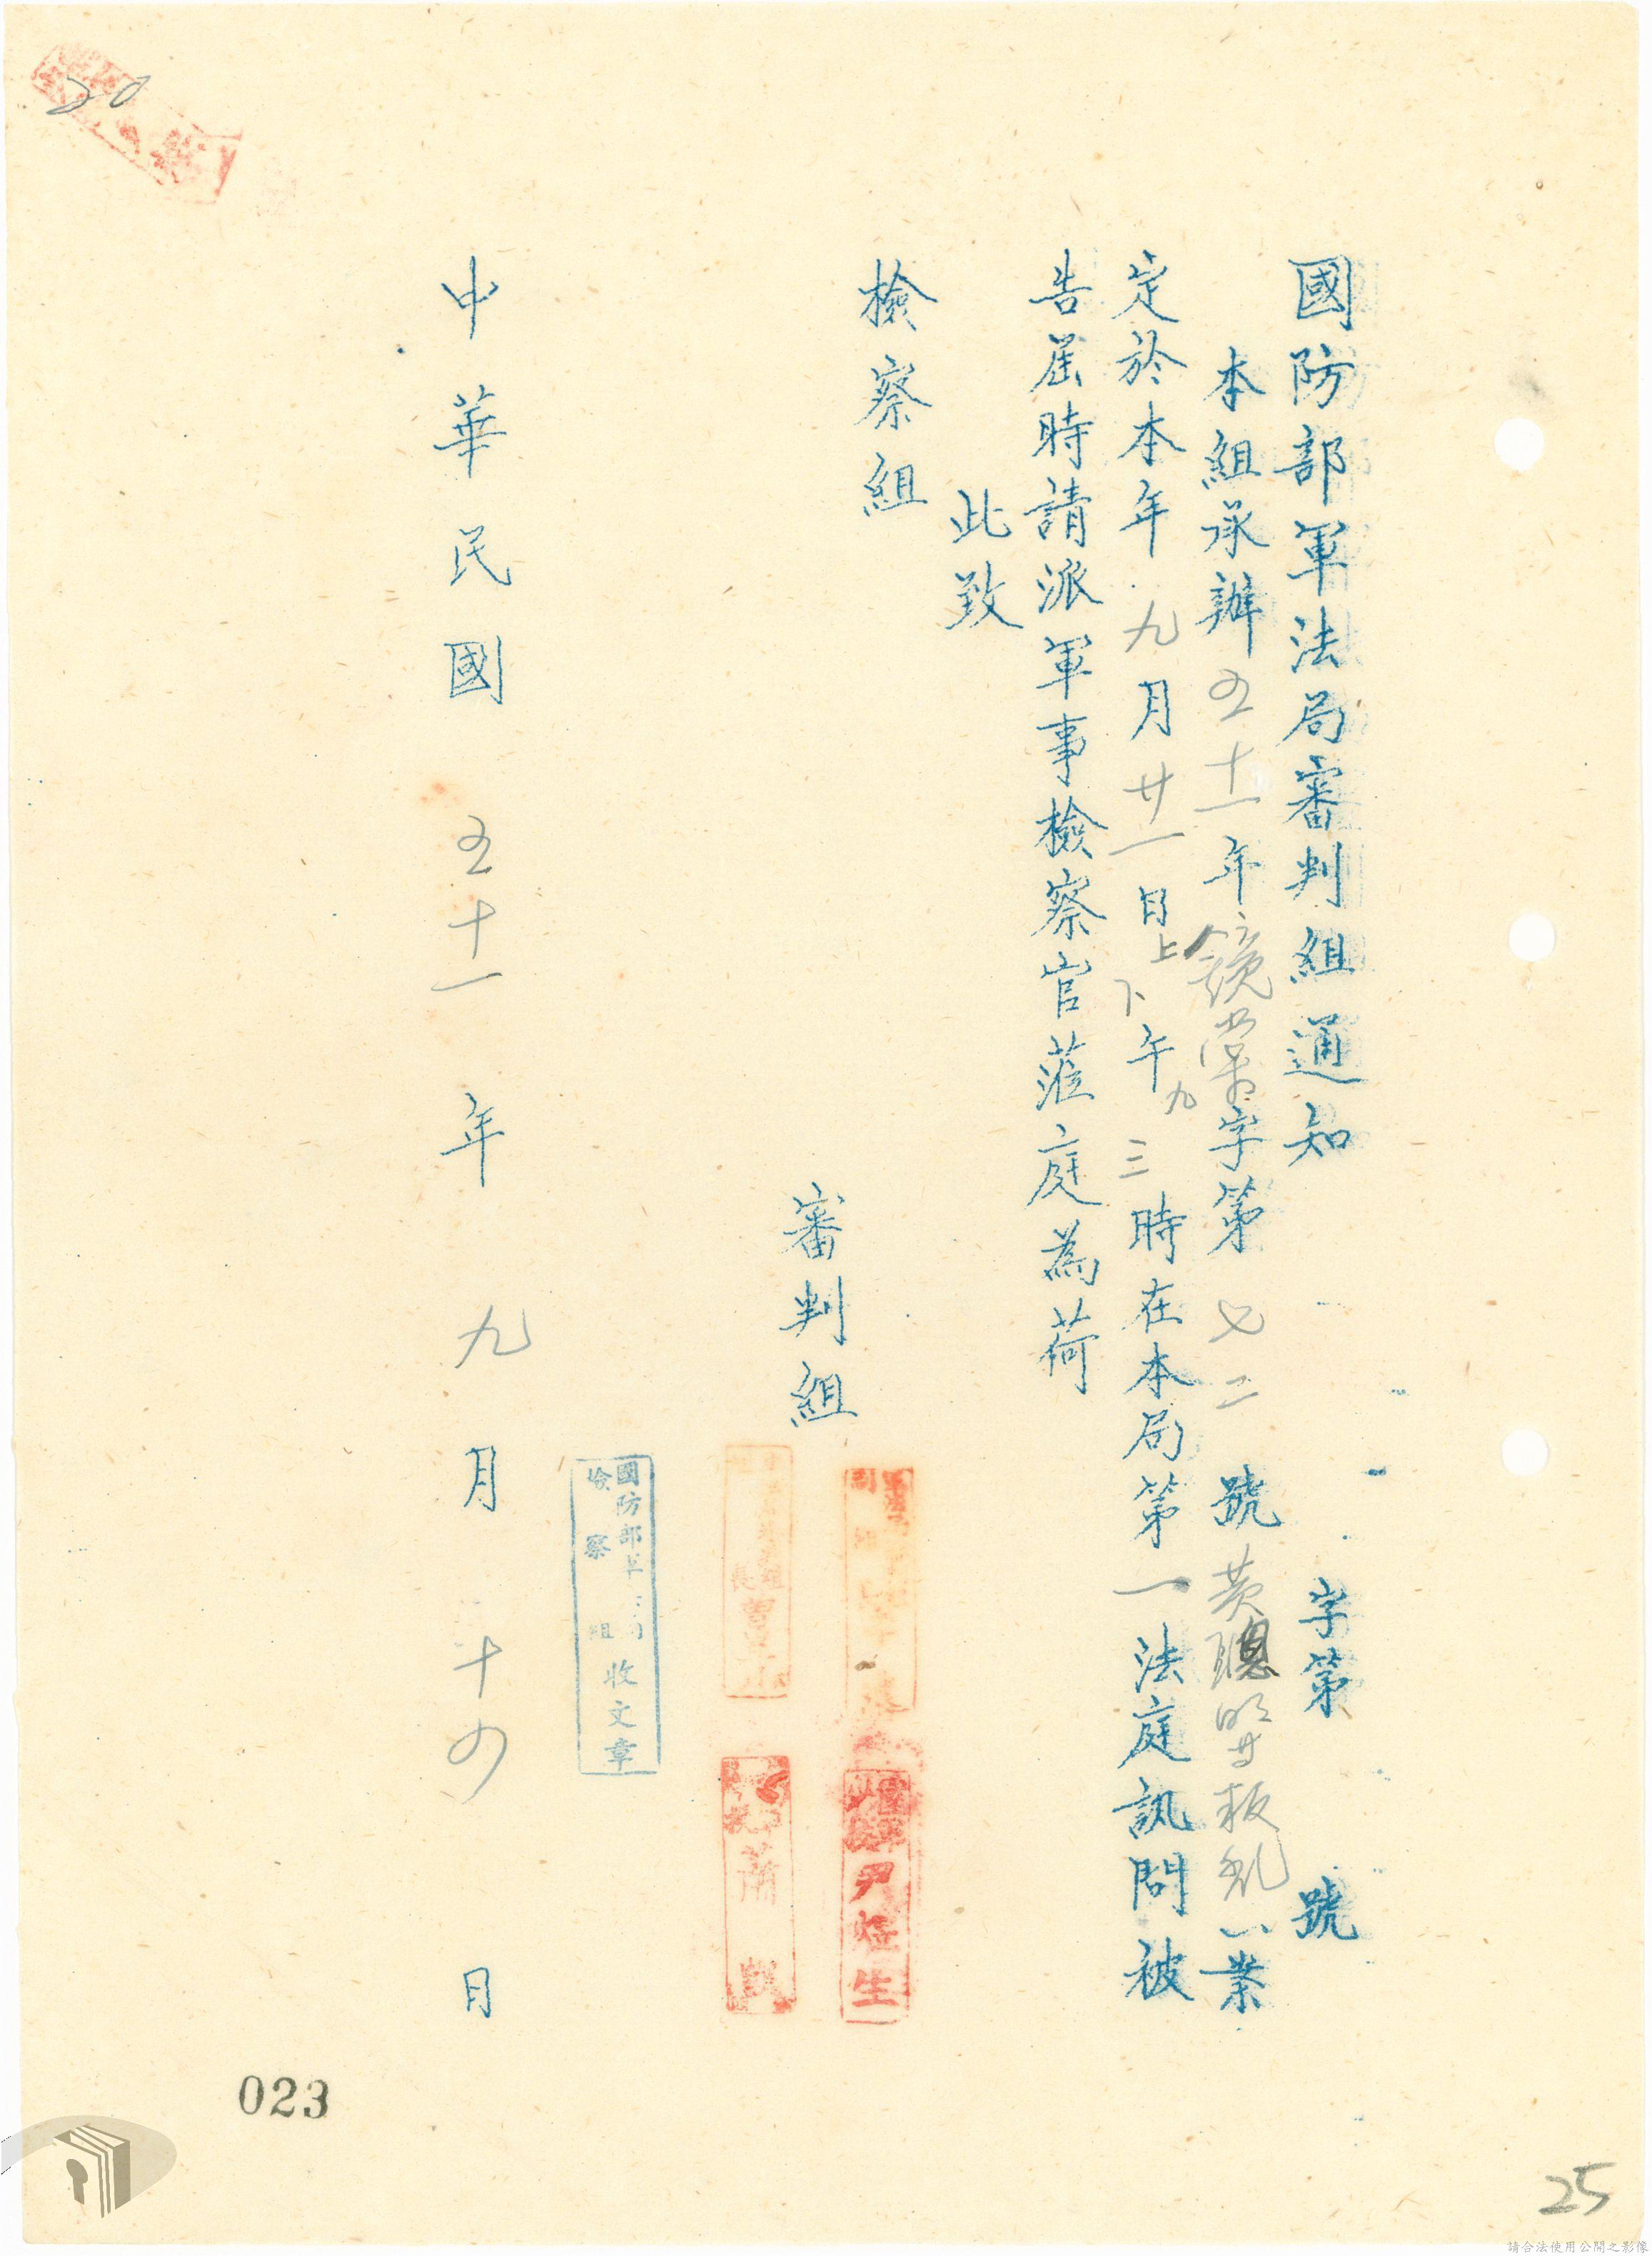 國防部軍法局審判組通知　字第　號
本組承辦五十一年鏡常字第七二號黃聰明等叛亂一案
定於本年九月廿一日上下午九三時在本局第一法庭訊問被
告屆時請派軍事檢察官蒞庭為荷
此致
檢察組
審判組
尹煌生
蕭
國防部軍法局
檢察組
收文章
中華民國五十一年九月十四日
20
023
25
請合法使用公開之影像